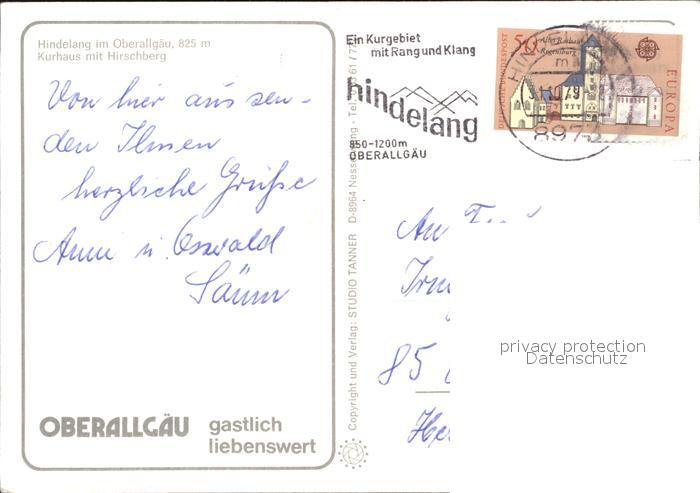 Hindelang im Oberallgäu, 825 m
Kurhaus mit Hirschberg
Von hier aus sen-
den Ihnen
herzliche Grüße
Anni u. Oswald
OBERALLGÄU gastlich
liebenswert
Copyright und Verlag: STUDIO TANNER D-8964 Nesselwang - Tel.
Ein Kurgebiet
mit Rang und Klang
hindelang
850-1200m
OBERALLGÄU
DEUTSCHE BUNDESPOST
50
Altes Rathaus
Regensburg
EUROPA
8973
An
85
privacy protection
Datenschutz